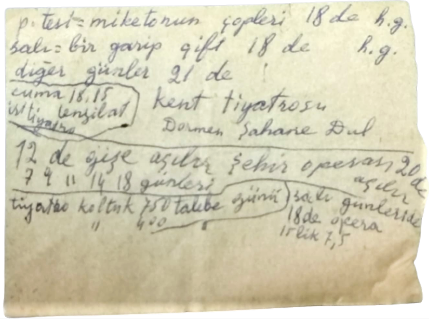 p. tesi = miketonun çopleri 18 de h.g.
salı = bir garip çift 18 de h.g.
diğer günler 21 de
cuma 18,15
tenzilat
tiyatro
Kent tiyatrosu
Dormen Şahane Dul
12 de gişe açılır şehir operası 20 de
açılır
7 9 11 14 18 günleri
tiyatro koltuk 750 talebe günü
" 400 "
salı günleride
18 de opera
lik 7,5